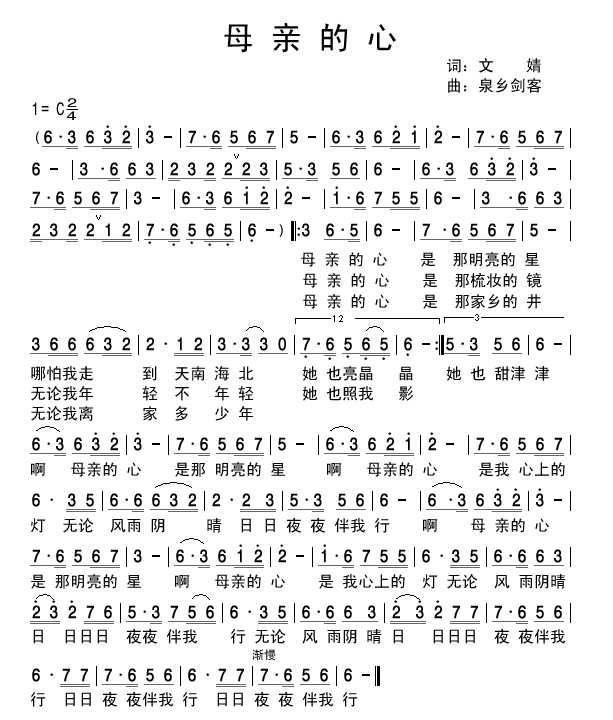 母 亲 的 心
词: 文 婧
曲: 泉乡剑客
1= C 2/4
( 6·3 6 3 2 | 3 - | 7·6 5 6 7 | 5 - | 6·3 6 2 1 | 2 - | 7·6 5 6 7 |
6 - | 3 ·6 6 3 | 2 3 2 2 2 3 | 5·3 5 6 | 6 - | 6·3 6 3 2 | 3 - |
7·6 5 6 7 | 3 - | 6·3 6 1 2 | 2 - | 1·6 7 5 5 | 6 - | 3 ·6 6 3 |
2 3 2 2 1 2 | 7·6 5 6 5 | 6 - ) |: 3 6·5 | 6 - | 7·6 5 6 7 | 5 - |
母 亲 的 心 是 那明亮的 星
母 亲 的 心 是 那梳妆的 镜
母 亲 的 心 是 那家乡的 井
12 3
3 6 6 6 6 3 2 | 2 · 1 2 | 3·3 3 0 | 7·6 5 6 5 | 6 - :| 5·3 5 6 | 6 - |
哪怕我走 到 天南 海 北 她 也亮晶 晶 她 也 甜津 津
无论我年 轻 不 年轻 她 也照我 影
无论我离 家 多 少年
6·3 6 3 2 | 3 - | 7·6 5 6 7 | 5 - | 6·3 6 2 1 | 2 - | 7·6 5 6 7 |
啊 母亲的 心 是那 明亮的 星 啊 母亲的 心 是我 心上的
6 · 3 5 | 6·6 6 3 2 | 2 · 3 | 5·3 5 6 | 6 - | 6·3 6 3 2 | 3 - |
灯 无论 风雨 阴 晴 日 日 夜 夜 伴我 行 啊 母 亲的 心
7·6 5 6 7 | 3 - | 6·3 6 1 2 | 2 - | 1·6 7 5 5 | 6 · 3 5 | 6·6 6 3 2 |
是 那明亮的 星 啊 母亲的 心 是 我心上的 灯 无论 风 雨阴晴
2 3 2 7 6 | 5·3 7 5 6 | 6 · 3 5 | 6·6 6 3 2 | 2 3 2 7 7 | 7·6 5 6 |
日 日日日 夜夜 伴我 行 无论 风 雨阴 晴 日 日日日 夜 夜伴我
渐慢
6 · 7 7 | 7·6 5 6 | 6 · 7 7 | 7·6 5 6 | 6 - ||
行 日日 夜 夜伴我 行 日日 夜 夜 伴我 行